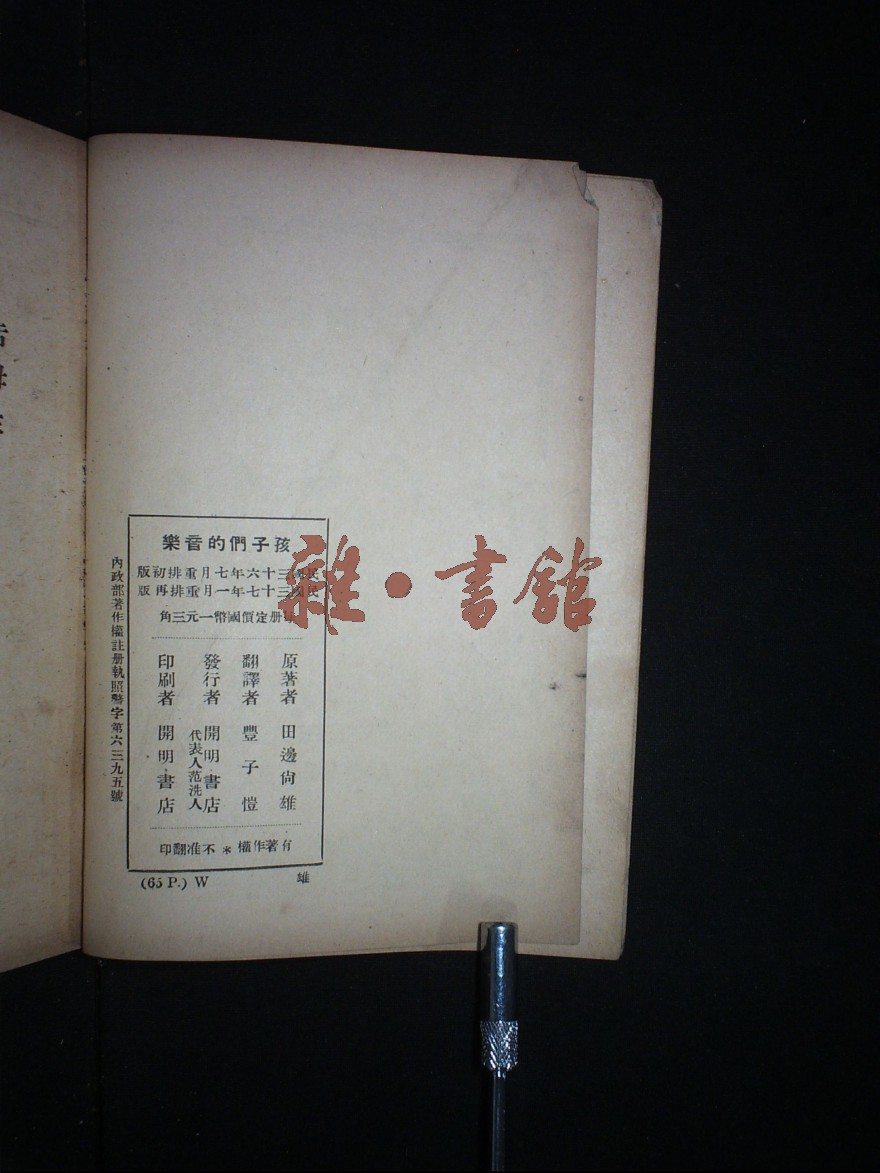 孩子們的音樂
民國三十六年七月重排初版
民國三十七年一月重排再版
每册定價國幣一元三角
原著者 田邊尙雄
翻譯者 豐子愷
發行者 開明書店
代表人范洗人
印刷者 開明書店
有著作權 * 不准翻印
內政部著作權註册執照警字第六三九五號
(65 P.) W
雄
雜·書館